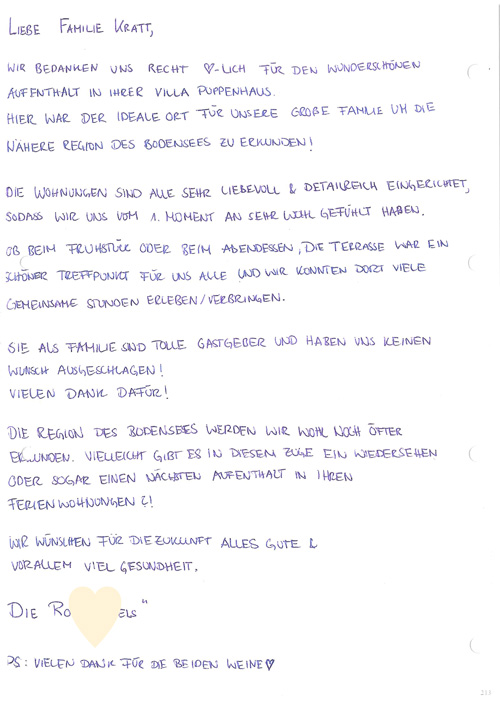 LIEBE FAMILIE KRATT,
WIR BEDANKEN UNS RECHT ♡-LICH FÜR DEN WUNDERSCHÖNEN
AUFENTHALT IN IHRER VILLA PUPPENHAUS.
HIER WAR DER IDEALE ORT FÜR UNSERE GROßE FAMILIE UM DIE
NÄHERE REGION DES BODENSEES ZU ERKUNDEN!
DIE WOHNUNGEN SIND ALLE SEHR LIEBEVOLL & DETAILREICH EINGERICHTET,
SODASS WIR UNS VOM 1. MOMENT AN SEHR WOHL GEFÜHLT HABEN.
OB BEIM FRÜHSTÜCK ODER BEIM ABENDESSEN, DIE TERRASSE WAR EIN
SCHÖNER TREFFPUNKT FÜR UNS ALLE UND WIR KONNTEN DORT VIELE
GEMEINSAME STUNDEN ERLEBEN/VERBRINGEN.
SIE ALS FAMILIE SIND TOLLE GASTGEBER UND HABEN UNS KEINEN
WUNSCH AUSGESCHLAGEN!
VIELEN DANK DAFÜR!
DIE REGION DES BODENSEES WERDEN WIR WOHL NOCH ÖFTER
ERKUNDEN. VIELLEICHT GIBT ES IN DIESEM ZUGE EIN WIEDERSEHEN
ODER SOGAR EINEN NÄCHSTEN AUFENTHALT IN IHREN
FERIENWOHNUNGEN ?!
WIR WÜNSCHEN FÜR DIE ZUKUNFT ALLES GUTE &
VORALLEM VIEL GESUNDHEIT.
DIE RO ELS"
PS: VIELEN DANK FÜR DIE BEIDEN WEINE♡